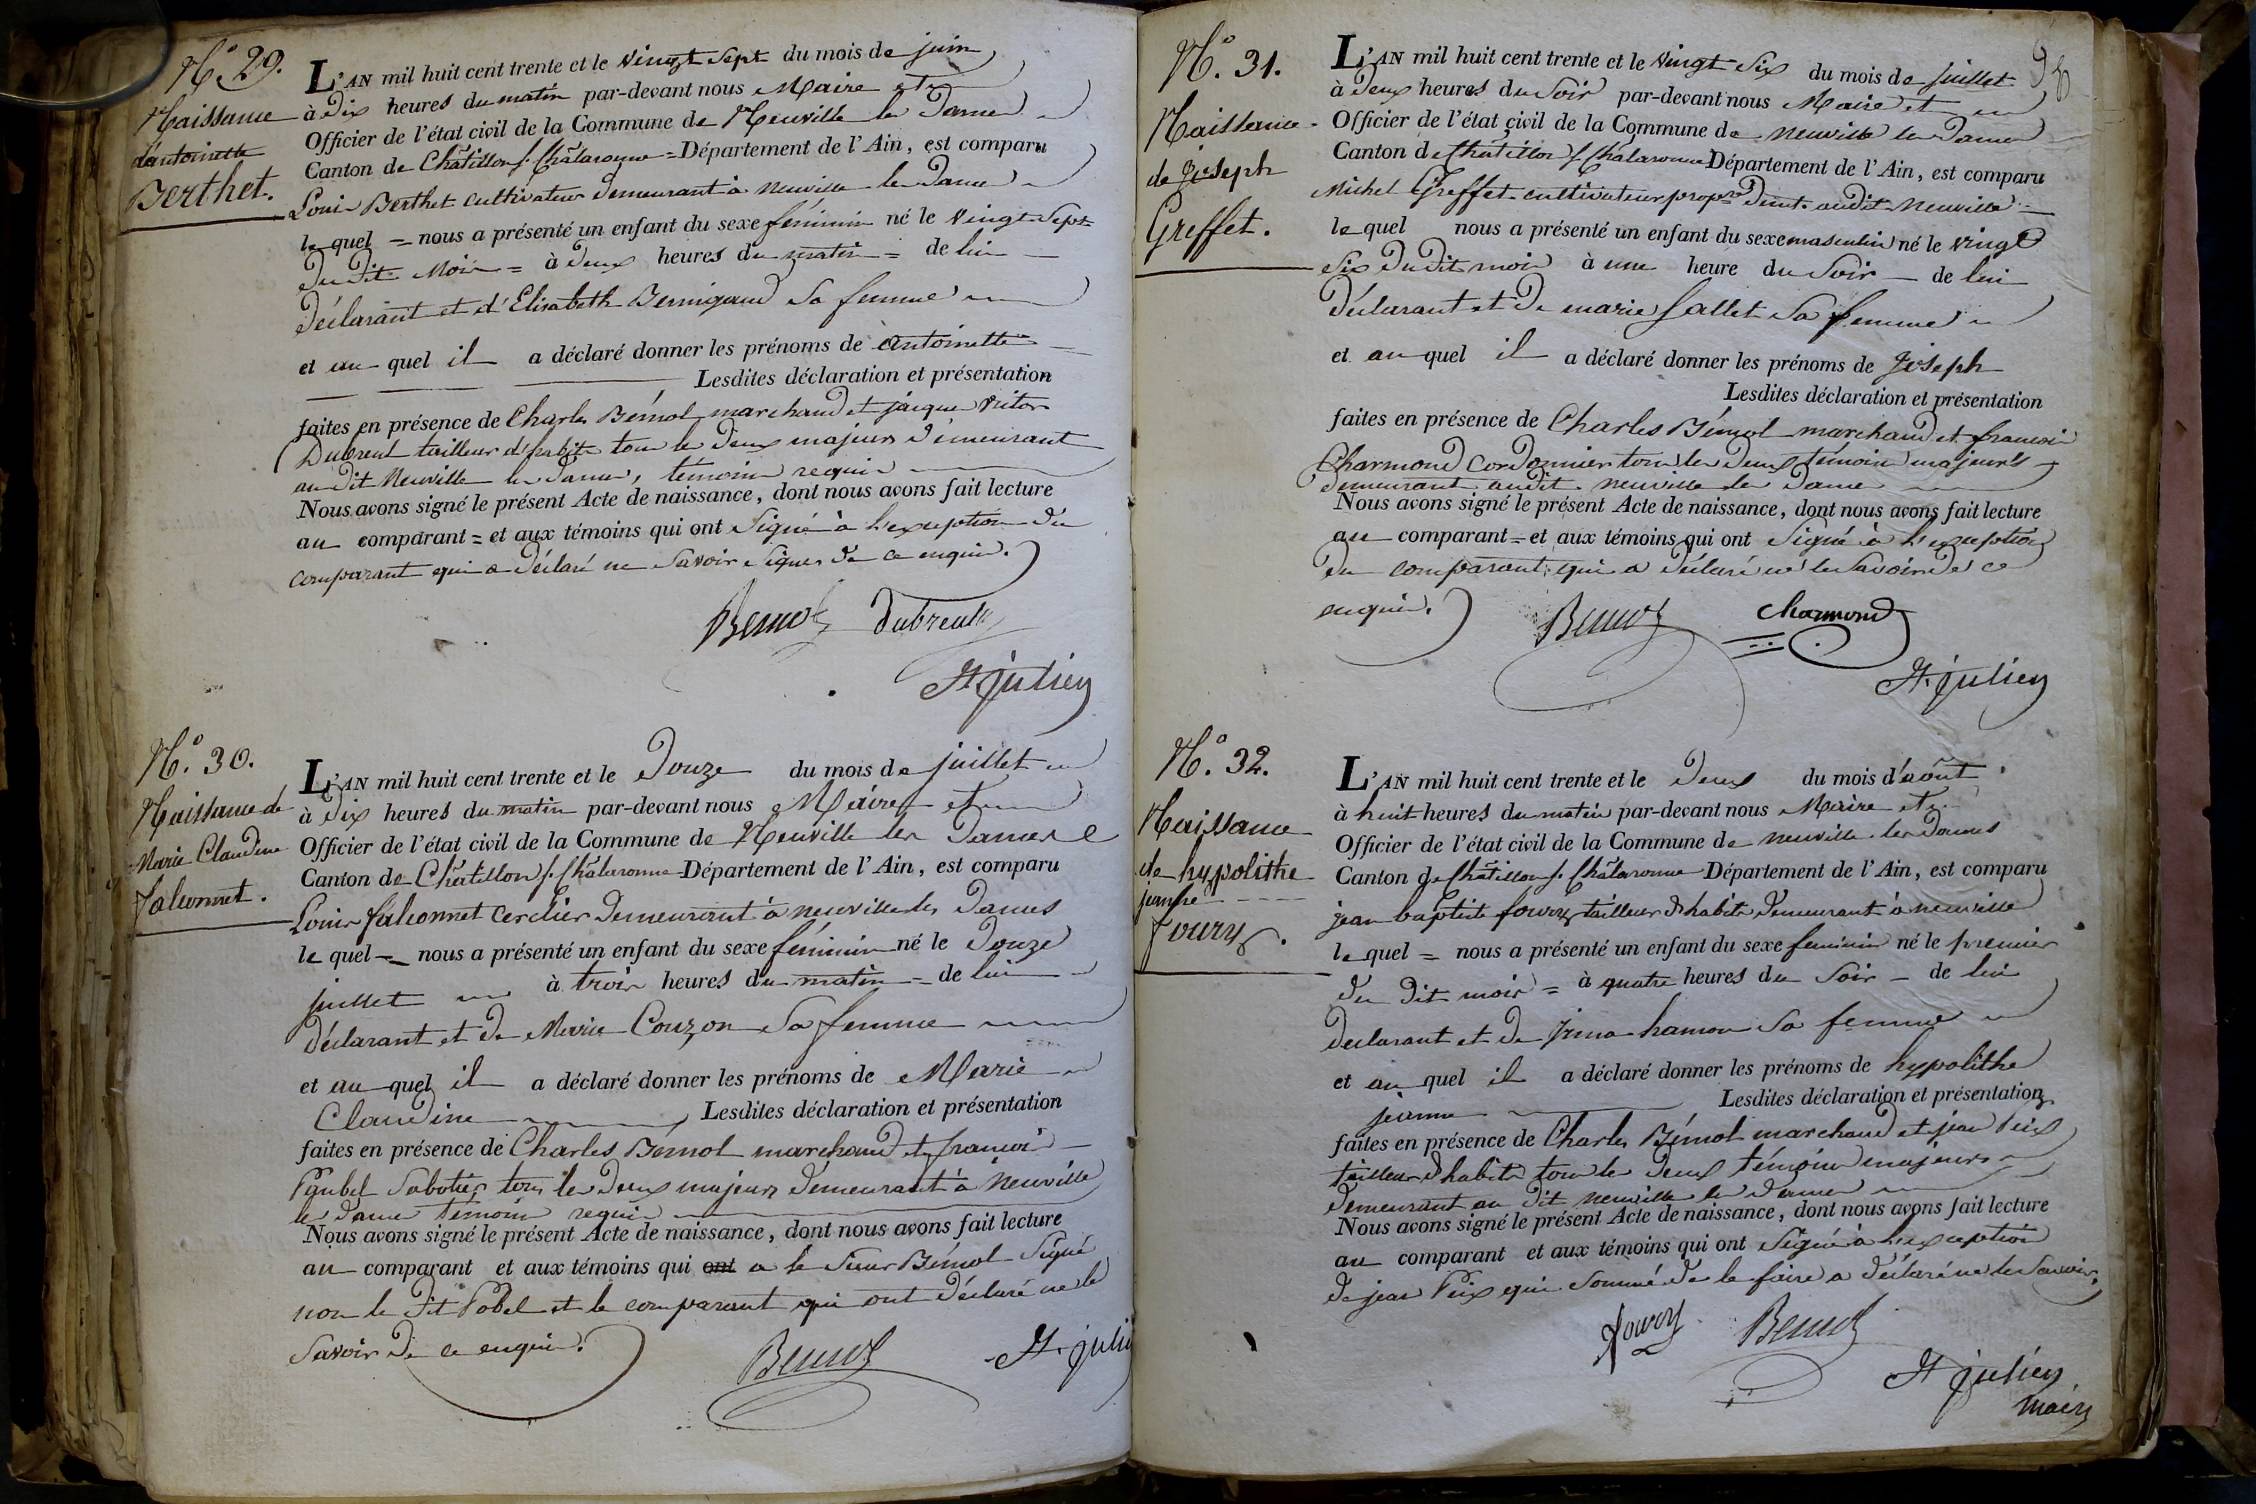 N.° 29.
Naissance
d'antoinette
Berthet.
L'AN mil huit cent trente et le vingt sept du mois de juin
à dix heures du matin par-devant nous Maire et
Officier de l'état civil de la Commune de Neuville les Dames
Canton de Châtillon s. Châlaronne = Département de l'Ain, est comparu
Louis Berthet cultivateur demeurant à neuville les dames
le quel = nous a présenté un enfant du sexe féminin né le vingt sept
du dit Mois = à deux heures du matin = de lui
déclarant et d'Elisabeth Bernigaud sa femme
et au quel il a déclaré donner les prénoms de antoinette
Lesdites déclaration et présentation
faites en présence de Charles Bémol marchand et jacque victor
Dubreul tailleur d'habits tous les deux majeurs demeurant
au dit Neuville les dames, témoins requis
Nous avons signé le présent Acte de naissance, dont nous avons fait lecture
au comparant = et aux témoins qui ont signé à l'exception du
comparant qui a déclaré ne savoir signer de ce enquis.
Bemol Dubreul
St julien
N.° 30.
Naissance de
Marie Claudine
falconnet.
L'AN mil huit cent trente et le douze du mois de juillet
à dix heures du matin par-devant nous Maire et
Officier de l'état civil de la Commune de Neuville les Dames
Canton de Châtillon s. Châlaronne Département de l'Ain, est comparu
Louis falconnet cerclier demeurant à neuville les dames
le quel = nous a présenté un enfant du sexe féminin né le douze
juillet à trois heures du matin = de lui
déclarant et de Marie Couzon sa femme
et au quel il a déclaré donner les prénoms de Marie
Claudine Lesdites déclaration et présentation
faites en présence de Charles Bémol marchand et francois
sabotier tous les deux majeurs demeurant à Neuville
les dames témoins requis
Nous avons signé le présent Acte de naissance, dont nous avons fait lecture
au comparant et aux témoins qui ont a le sieur Bémol signé
non le dit Pobel et le comparant qui ont déclaré ne le
savoir de ce enquis.
Bemol St. julien
N.° 31.
Naissance
de joseph
Greffet.
L'AN mil huit cent trente et le vingt six du mois de juillet
à deux heures du soir par-devant nous Maire et
Officier de l'état civil de la Commune de neuville les dames
Canton de Châtillon s. Châlaronne Département de l'Ain, est comparu
Michel Greffet cultivateur propre demt. audit Neuville
le quel nous a présenté un enfant du sexe masculin né le vingt
six du dit mois à une heure du soir de lui
déclarant et de marie fallet sa femme
et au quel il a déclaré donner les prénoms de joseph
Lesdites déclaration et présentation
faites en présence de Charles Bémol marchand et francois
Charmond cordonnier tous les deux témoins majeurs
demeurant audit neuville les dames
Nous avons signé le présent Acte de naissance, dont nous avons fait lecture
au comparant = et aux témoins qui ont signé à l'exception
du comparant qui a déclaré ne le savoir de ce
enquis.
Bemol Charmond
St. julien
N.° 32.
Naissance
de hypolithe
jeanne
foury.
L'AN mil huit cent trente et le deux du mois d'août
à huit heures du matin par-devant nous Maire et
Officier de l'état civil de la Commune de neuville les dames
Canton de Châtillon s. Châlaronne Département de l'Ain, est comparu
jean baptiste foury tailleur d'habits demeurant à neuville
le quel = nous a présenté un enfant du sexe feminin né le premier
du dit mois = à quatre heures du soir - de lui
declarant et de hamon sa femme
et au quel il a déclaré donner les prénoms de hypolithe
jeanne Lesdites déclaration et présentation
faites en présence de Charles Bémol marchand et jean Peix
tailleur d'habits tous les deux témoins majeurs
demeurant au dit neuville les dames
Nous avons signé le présent Acte de naissance, dont nous avons fait lecture
au comparant et aux témoins qui ont signé à l'exception
de jean Peix qui sommé de le faire a déclaré ne le savoir.
foury Bemol
St julien
maire